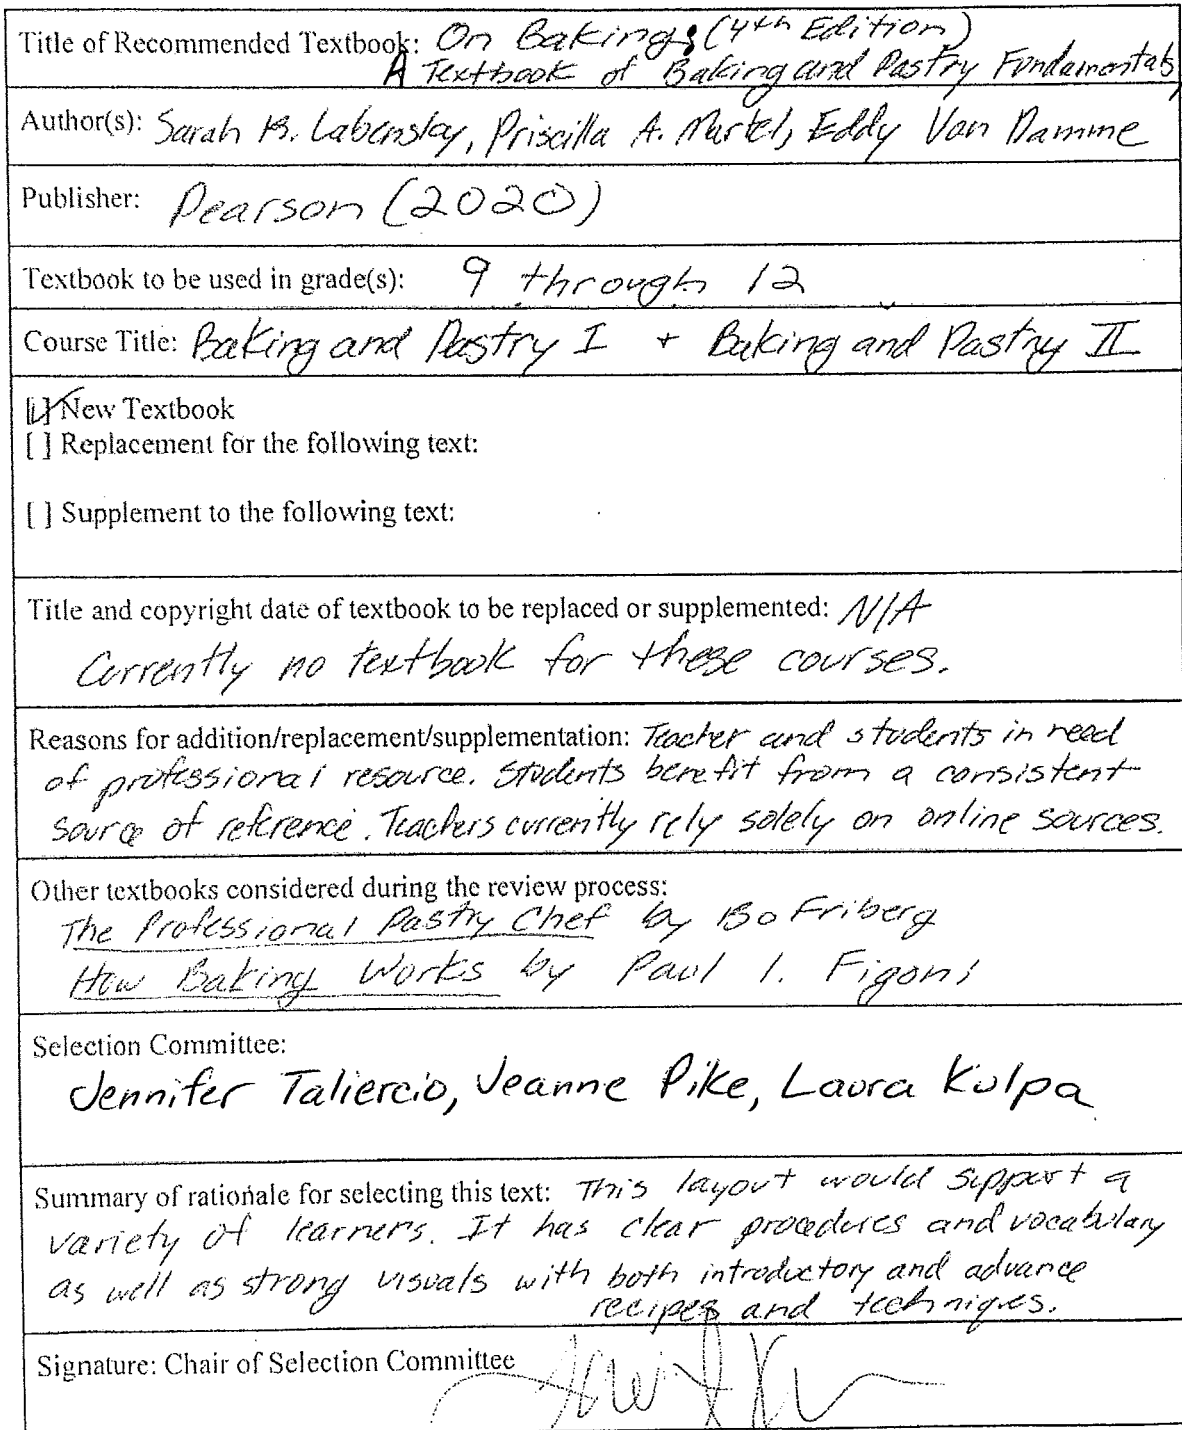 Title of Recommended Textbook: On Baking: (4th Edition)
A Textbook of Baking and Pastry Fundamentals
Author(s): Sarah R. Labensky, Priscilla A. Martel, Eddy Van Damme
Publisher: Pearson (2020)
Textbook to be used in grade(s): 9 through 12
Course Title: Baking and Pastry I + Baking and Pastry II
[✓] New Textbook
[ ] Replacement for the following text:
[ ] Supplement to the following text:
Title and copyright date of textbook to be replaced or supplemented: N/A
Currently no textbook for these courses.
Reasons for addition/replacement/supplementation: Teacher and students in need
of professional resource. Students benefit from a consistent
source of reference. Teachers currently rely solely on online sources.
Other textbooks considered during the review process:
The Professional Pastry Chef by Bo Friberg
How Baking Works by Paul I. Figoni
Selection Committee:
Jennifer Taliercio, Jeanne Pike, Laura Kulpa
Summary of rationale for selecting this text: This layout would support a
variety of learners. It has clear procedures and vocabulary
as well as strong visuals with both introductory and advance
recipes and techniques.
Signature: Chair of Selection Committee